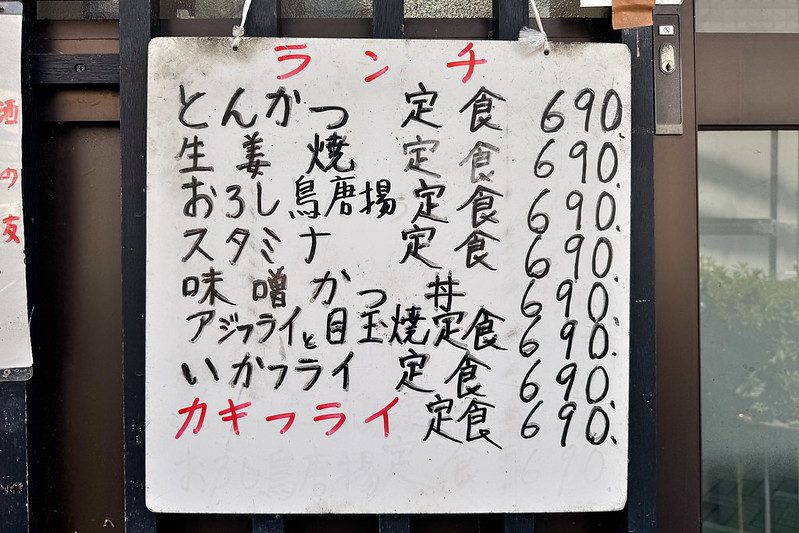 ランチ
とんかつ 定食 690.
生姜焼 定食 690.
おろし鳥唐揚 定食 690.
スタミナ 定食 690.
味噌かつ 丼 690.
アジフライと目玉焼定食 690.
いかフライ 定食 690.
カキフライ 定食 690.
おろし鳥唐揚定食 690
酒の友